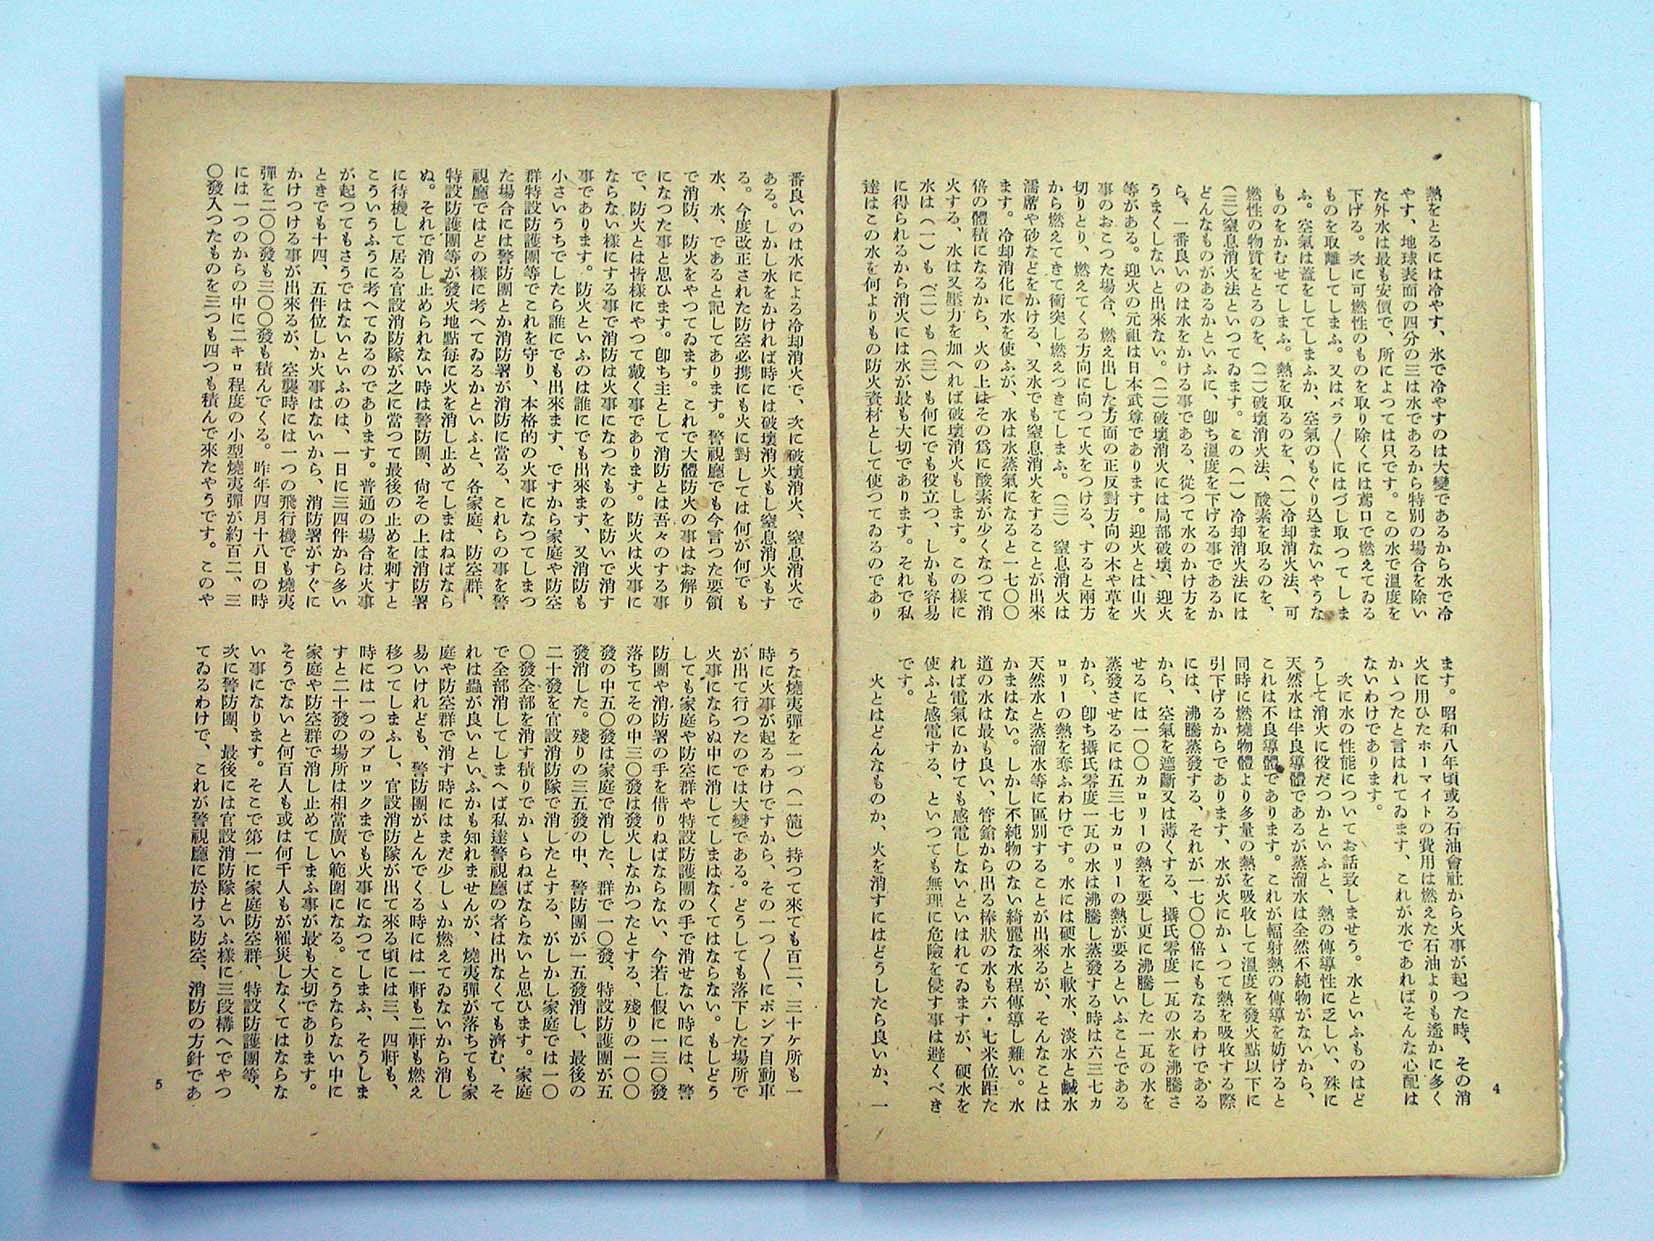 熱をとるには冷やす、氷で冷やすのは大變であるから水で冷
やす、地球表面の四分の三は水であるから特別の場合を除い
た外水は最も安價で、所によつては只です。この水で溫度を
下げる。次に可燃性のものを取り除くには鳶口で燃えてゐる
ものを取離してしまふ。又はバラ〱にはづし取つてしま
ふ。空氣は蓋をしてしまふか、空氣のもぐり込まないやうな
ものをかむせてしまふ。熱を取るのを、(一)冷却消火法、可
燃性の物質をとるのを、(二)破壞消火法、酸素を取るのを、
(三)窒息消火法といつてゐます。この(一)冷却消火法には
どんなものがあるかといふに、卽ち溫度を下げる事であるか
ら、一番良いのは水をかける事である、從つて水のかけ方を
うまくしないと出來ない。(二)破壞消火には局部破壞、迎火
等がある。迎火の元祖は日本武尊であります。迎火とは山火
事のおこつた場合、燃え出した方面の正反對方向の木や草を
切りとり、燃えてくる方向に向つて火をつける、すると兩方
から燃えてきて衝突し燃えつきてしまふ。(三)窒息消火は
濡席や砂などをかける、又水でも窒息消火をすることが出來
ます。冷却消化に水を使ふが、水は水蒸氣になると一七〇〇
倍の體積になるから、火の上はその爲に酸素が少くなつて消
火する、水は又壓力を加へれば破壞消火もします。この樣に
水は(一)も(二)も(三)も何にでも役立つ、しかも容易
に得られるから消火には水が最も大切であります。それで私
達はこの水を何よりもの防火資材として使つてゐるのであり
ます。昭和八年頃或る石油會社から火事が起つた時、その消
火に用ひたホーマイトの費用は燃えた石油よりも遙かに多く
かゝつたと言はれてゐます、これが水であればそんな心配は
ないわけであります。
次に水の性能についてお話致しませう。水といふものはど
うして消火に役だつかといふと、熱の傳導性に乏しい、殊に
天然水は半良導體であるが蒸溜水は全然不純物がないから、
これは不良導體であります。これが輻射熱の傳導を妨げると
同時に燃燒物體より多量の熱を吸收して溫度を發火點以下に
引下げるからであります、水が火にかゝつて熱を吸收する際
には、沸騰蒸發する、それが一七〇〇倍にもなるわけである
から、空氣を遮斷又は薄くする、攝氏零度一瓦の水を沸騰さ
せるには一〇〇カロリーの熱を要し更に沸騰した一瓦の水を
蒸發させるには五三七カロリーの熱が要るといふことである
から、卽ち攝氏零度一瓦の水は沸騰し蒸發する時は六三七カ
ロリーの熱を奪ふわけです。水には硬水と軟水、淡水と鹹水
天然水と蒸溜水等に區別することが出來るが、そんなことは
かまはない。しかし不純物のない綺麗な水程傳導し難い。水
道の水は最も良い、管鎗から出る棒狀の水も六・七米位距た
れば電氣にかけても感電しないといはれてゐますが、硬水を
使ふと感電する、といつても無理に危險を侵す事は避くべき
です。
火とはどんなものか、火を消すにはどうしたら良いか、一
4
番良いのは水による冷却消火で、次に破壞消火、窒息消火で
ある。しかし水をかければ時には破壞消火もし窒息消火もす
る。今度改正された防空必携にも火に對しては何が何でも
水、水、であると記してあります。警視廳でも今言つた要領
で消防、防火をやつてゐます。これで大體防火の事はお解り
になつた事と思ひます。卽ち主として消防とは吾々のする事
で、防火とは皆樣にやつて戴く事であります。防火は火事に
ならない樣にする事で消防は火事になつたものを防いで消す
事であります。防火といふのは誰にでも出來ます、又消防も
小さいうちでしたら誰にでも出來ます、ですから家庭や防空
群特設防護團等でこれを守り、本格的の火事になつてしまつ
た場合には警防團とか消防署が消防に當る、これらの事を警
視廳ではどの樣に考へてゐるかといふと、各家庭、防空群、
特設防護團等が發火地點每に火を消し止めてしまはねばなら
ぬ。それで消し止められない時は警防團、尙その上は消防署
に待機して居る官設消防隊が之に當つて最後の止めを刺すと
こういうふうに考へてゐるのであります。普通の場合は火事
が起つてもさうではないといふのは、一日に三四件から多い
ときでも十四、五件位しか火事はないから、消防署がすぐに
かけつける事が出來るが、空襲時には一つの飛行機でも燒夷
彈を二〇〇發も三〇〇發も積んでくる。昨年四月十八日の時
には一つのからの中に二キロ程度の小型燒夷彈が約百二、三
〇發入つたものを三つも四つも積んで來たやうです。このや
うな燒夷彈を一つ(一籠)持つて來ても百二、三十ケ所も一
時に火事が起るわけですから、その一つ〱にポンプ自動車
が出て行つたのでは大變である。どうしても落下した場所で
火事にならぬ中に消してしまはなくてはならない。もしどう
しても家庭や防空群や特設防護團の手で消せない時には、警
防團や消防署の手を借りねばならない、今若し假に一三〇發
落ちてその中三〇發は發火しなかつたとする、殘りの一〇〇
發の中五〇發は家庭で消した、群で一〇發、特設防護團が五
發消した。殘りの三五發の中、警防團が一五發消し、最後の
二十發を官設消防隊で消したとする、がしかし家庭では一〇
〇發全部を消す積りでかゝらねばならないと思ひます。家庭
で全部消してしまへば私達警視廳の者は出なくても濟む、そ
れは蟲が良いといふかも知れませんが、燒夷彈が落ちても家
庭や防空群で消す時にはまだ少しゝか燃えてゐないから消し
易いけれども、警防團がとんでくる時には一軒も二軒も燃え
移つてしまふし、官設消防隊が出て來る頃には三、四軒も、
時には一つのブロックまでも火事になつてしまふ、そうしま
すと二十發の場所は相當廣い範圍になる。こうならない中に
家庭や防空群で消し止めてしまふ事が最も大切であります。
そうでないと何百人も或は何千人もが罹災しなくてはならな
い事になります。そこで第一に家庭防空群、特設防護團等、
次に警防團、最後には官設消防隊といふ樣に三段構へでやつ
てゐるわけで、これが警視廳に於ける防空、消防の方針であ
5